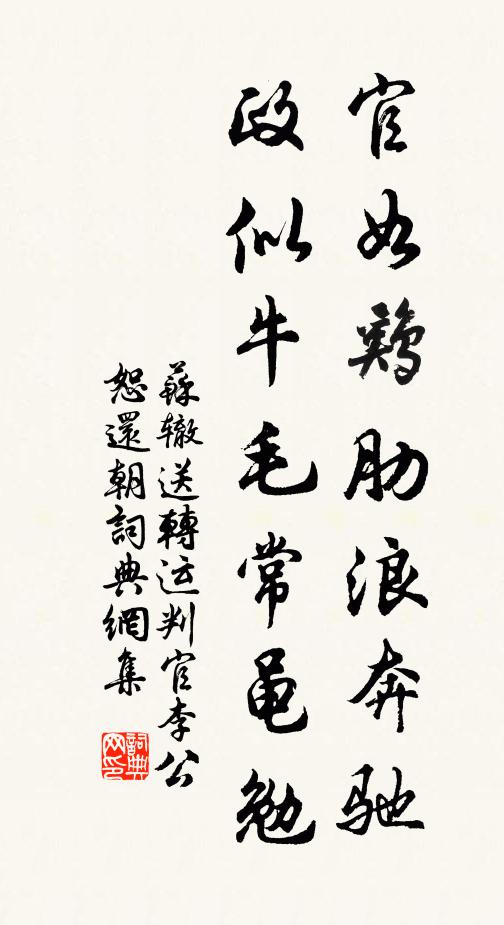 官如鷄肋浪奔馳
政似牛毛常黽勉
蘇轍送轉运判官李公
恕還朝詞典網集
詞典網印